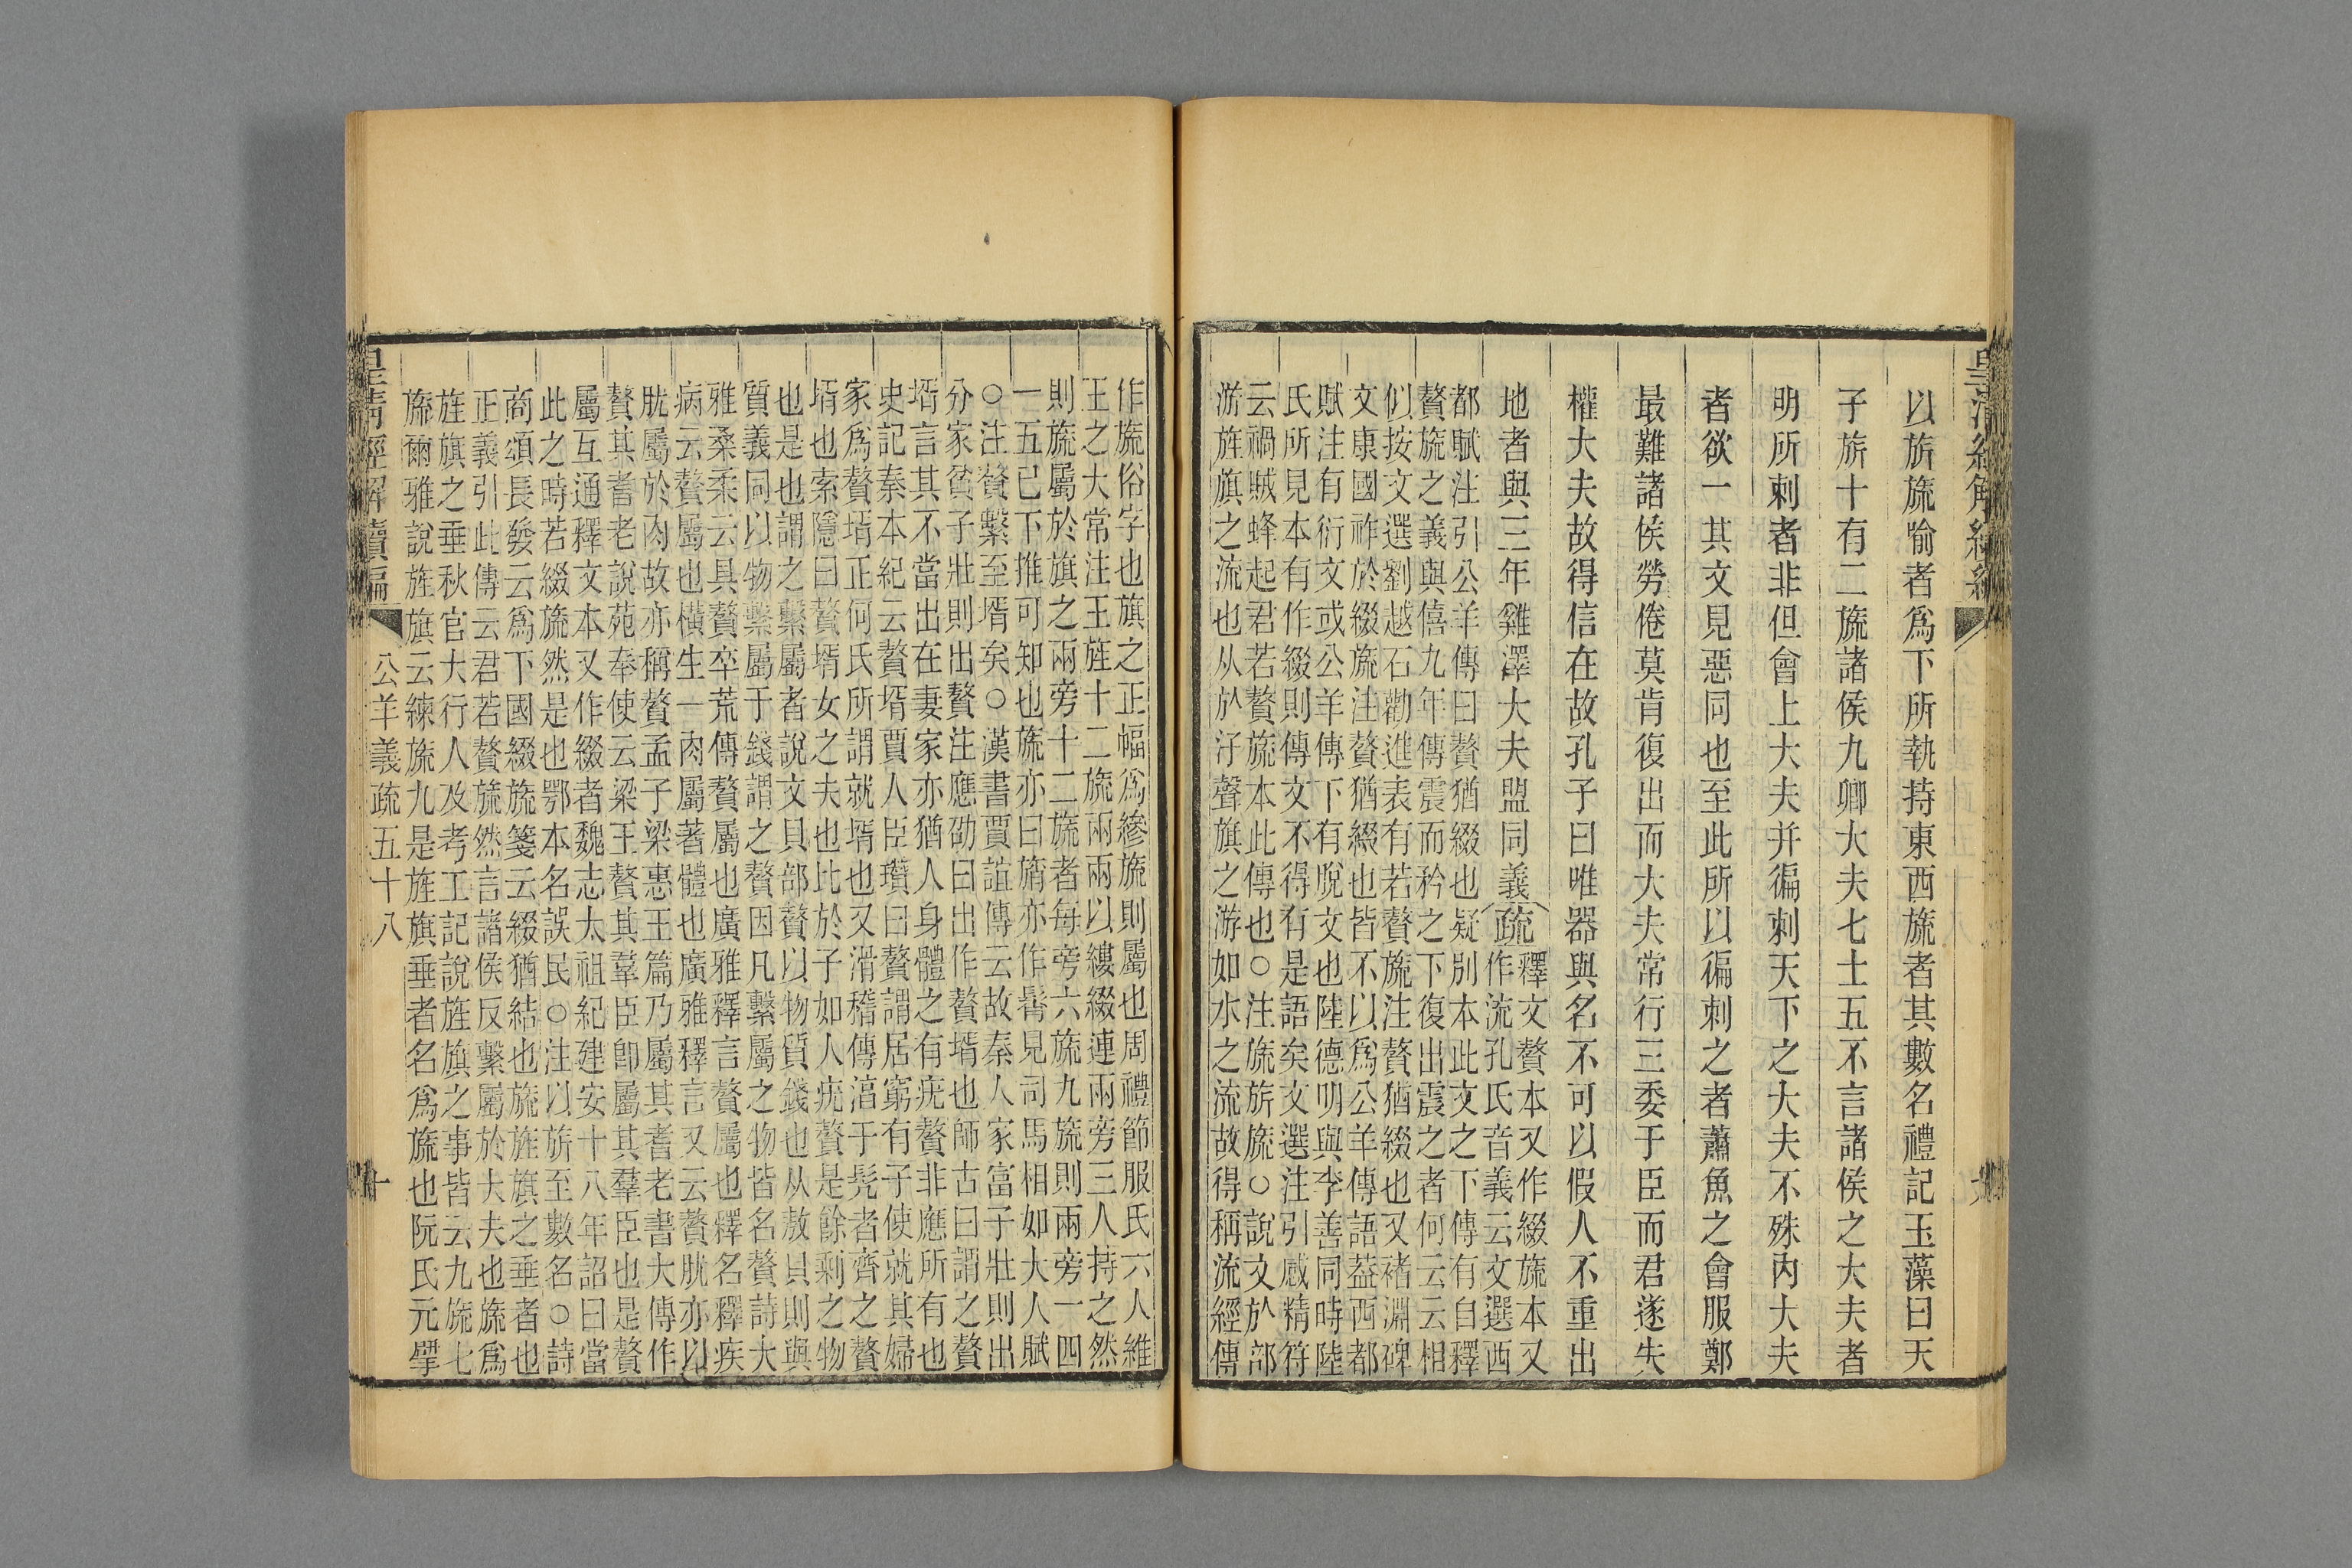 以旂旒喻者爲下所執持東西旒者其數名禮記玉藻曰天
子旂十有二旒諸侯九卿大夫七士五不言諸侯之大夫者
明所刺者非但會上大夫并徧刺天下之大夫不殊內大夫
者欲一其文見惡同也至此所以徧刺之者蕭魚之會服鄭
最難諸侯勞倦莫肯復出而大夫常行三委于臣而君遂失
權大夫故得信在故孔子曰唯器與名不可以假人不重出
地者與三年雞澤大夫盟同義疏釋文贅本又作綴旒本又
作流孔氏音義云文選西
都賦注引公羊傳曰贅猶綴也疑別本此文之下傳有自釋
贅旒之義與僖九年傳震而矜之下復出震之者何云云相
似按文選劉越石勸進表有若贅旒注贅猶綴也又褚淵碑
文康國祚於綴旒注贅猶綴也皆不以爲公羊傳語葢西都
賦注有衍文或公羊傳下有脫文也陸德明與李善同時陸
氏所見本有作綴則傳文不得有是語矣文選注引感精符
云禍賊蜂起君若贅旒本此傳也○注旂旒○說文㫃部
游旌旗之流也从㫃汙聲旗之游如水之流故得稱流經傳
作旒俗字也旗之正幅爲縿旒則屬也周禮節服氏六人維
王之大常注王旌十二旒兩兩以縷綴連兩旁三人持之然
則旒屬於旗之兩旁十二旒者每旁六旒九旒則兩旁一四
一五已下推可知也旒亦曰旓亦作髾見司馬相如大人賦
○注贅繫至壻矣○漢書賈誼傳云故秦人家富子壯則出
分家貧子壯則出贅注應劭曰出作贅壻也師古曰謂之贅
壻言其不當出在妻家亦猶人身體之有疣贅非應所有也
史記秦本紀云贅壻賈人臣瓚曰贅謂居窮有子使就其婦
家爲贅壻正何氏所謂就壻也又滑稽傳淳于髡者齊之贅
壻也索隱曰贅壻女之夫也比於子如人疣贅是餘剩之物
也是也謂之繫屬者說文貝部贅以物質錢也从敖貝則與
質義同以物繫屬于錢謂之贅因凡繫屬之物皆名贅詩大
雅桑柔云具贅卒荒傳贅屬也廣雅釋言贅屬也釋名釋疾
病云贅屬也橫生一肉屬著體也廣雅釋言又云贅肬亦以
肬屬於肉故亦稱贅孟子梁惠王篇乃屬其耆老書大傳作
贅其耆老說苑奉使云梁王贅其羣臣卽屬其羣臣也是贅
屬互通釋文本又作綴者魏志太祖紀建安十八年詔曰當
此之時若綴旒然是也鄂本名誤民○注以旂至數名○詩
商頌長發云爲下國綴旒箋云綴猶結也旒旌旗之垂者也
正義引此傳云君若贅旒然言諸侯反繫屬於大夫也旒爲
旌旗之垂秋官大行人及考工記說旌旗之事皆云九旒七
旒爾雅說旌旗云練旒九是旌旗垂者名爲旒也阮氏元揅
皇清經解續編 公羊義疏五十八 十